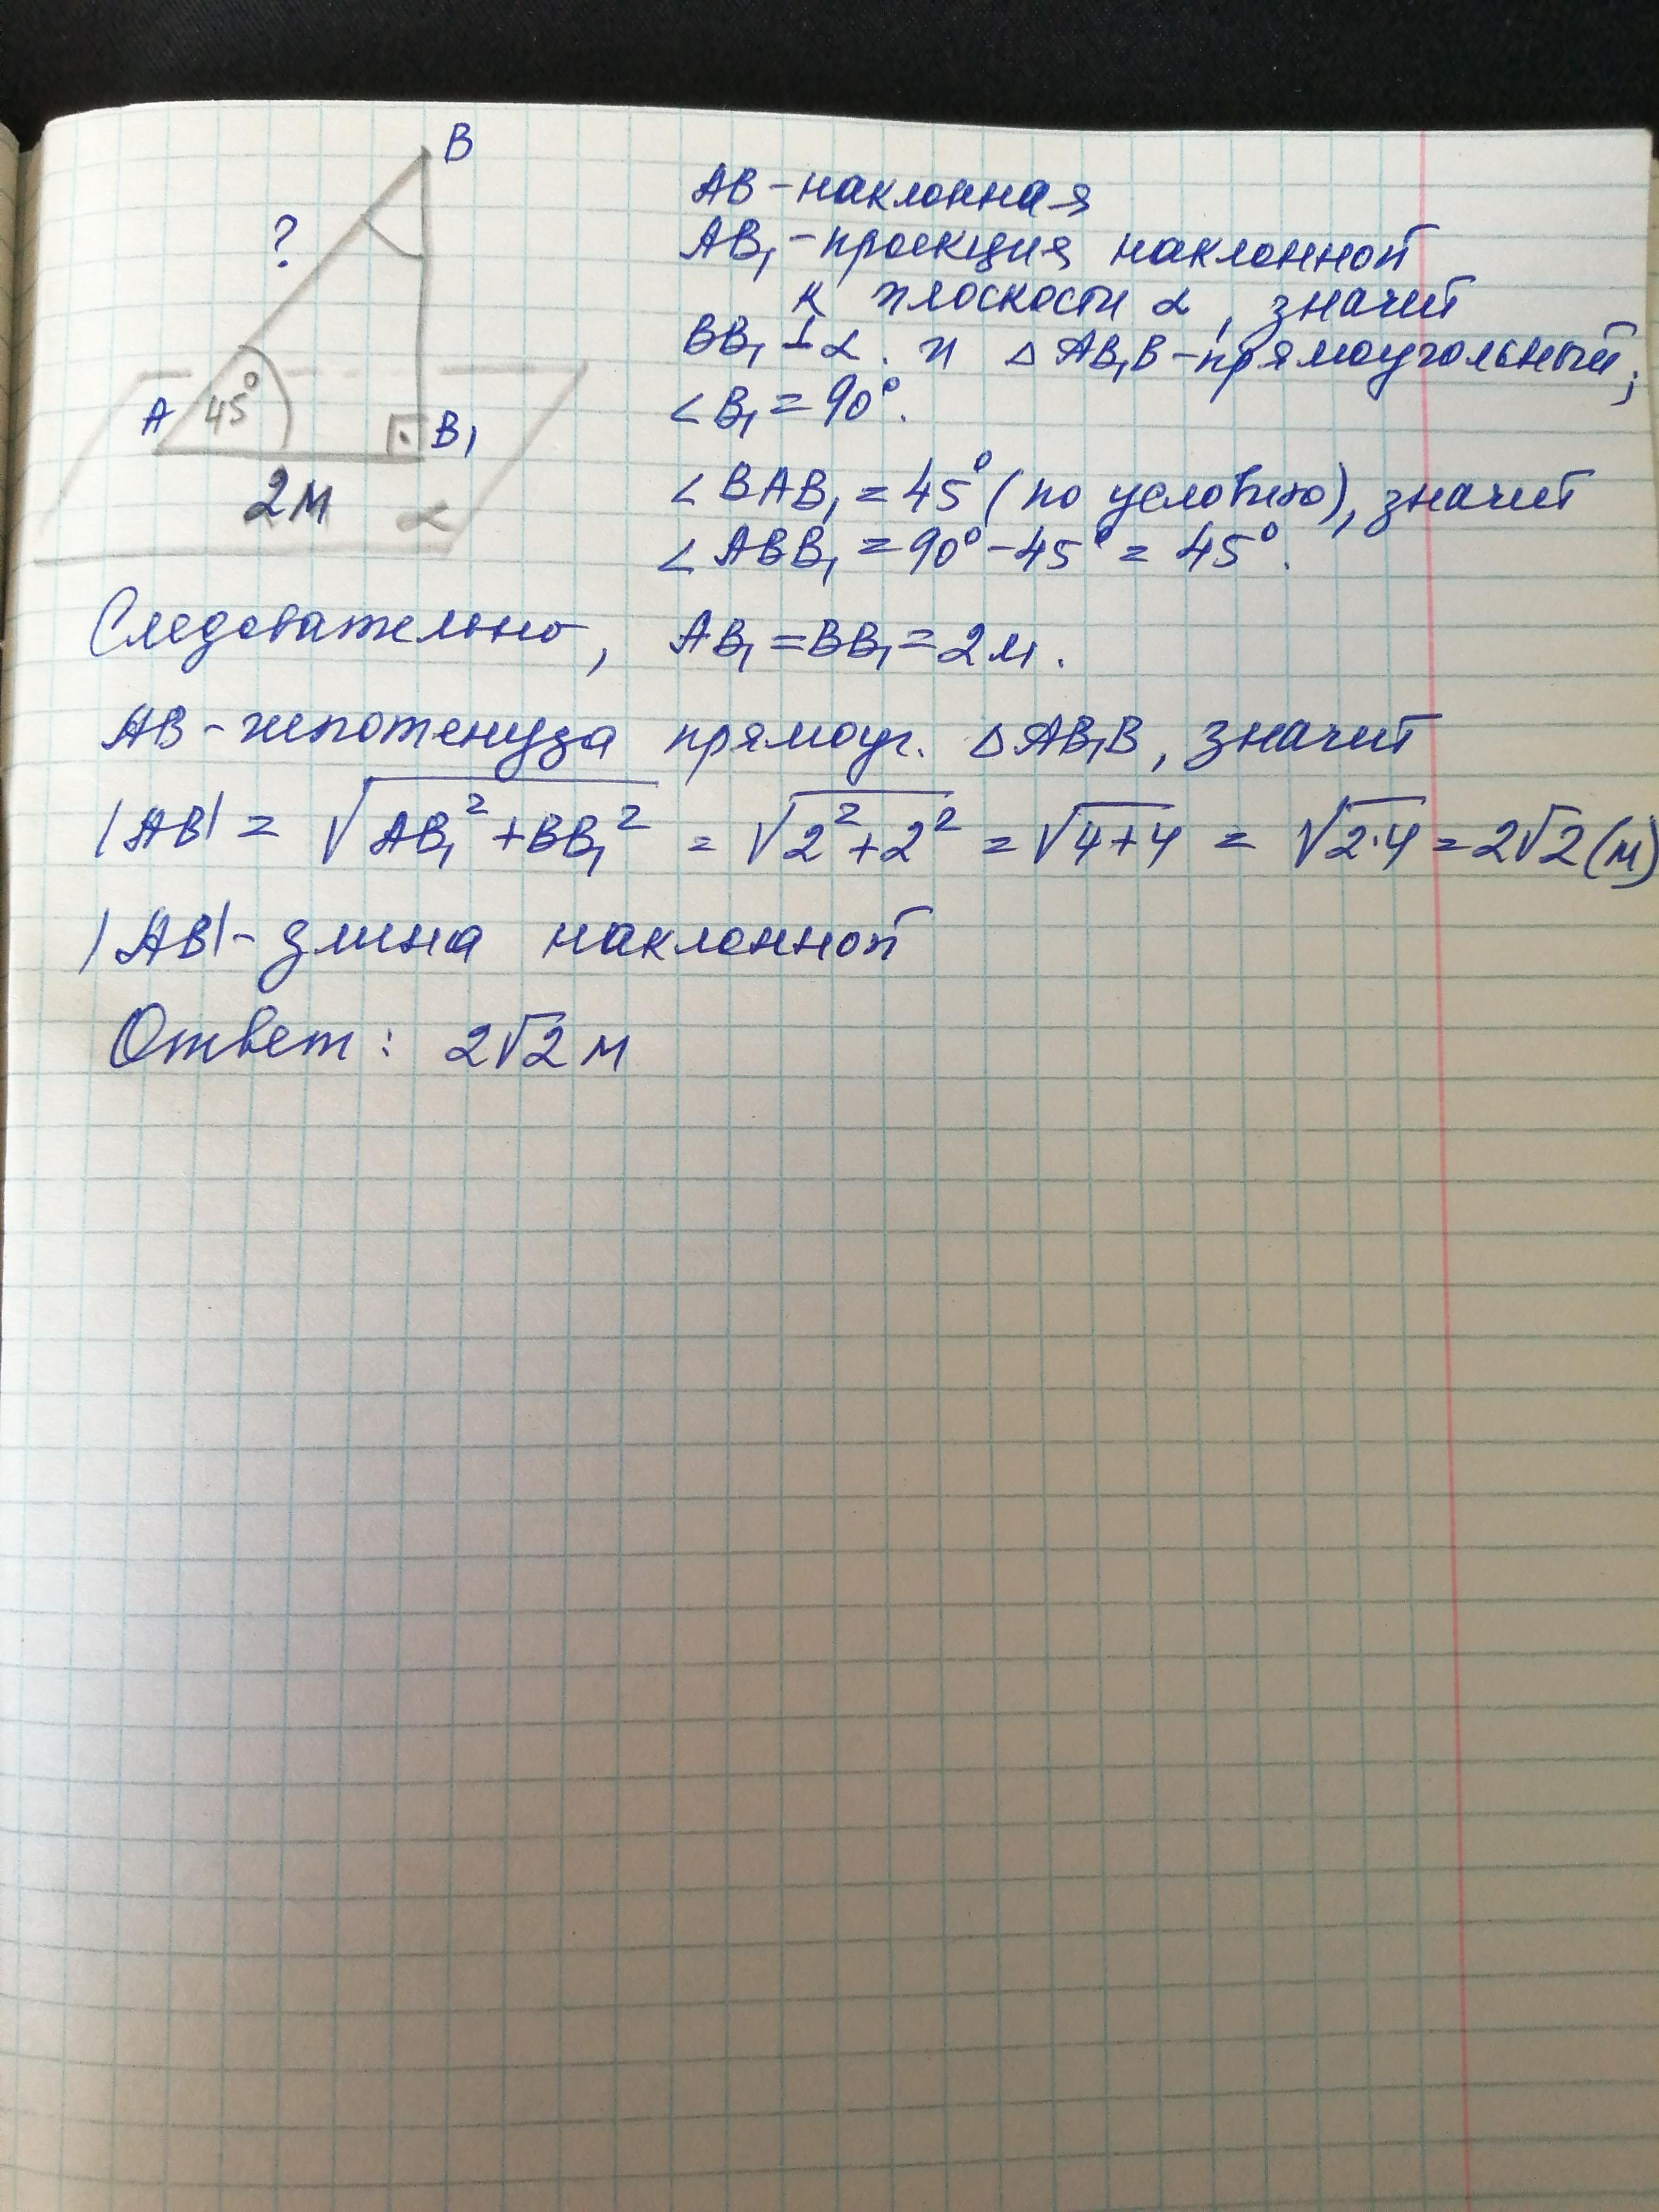 B
?
A 45° B₁
2м α
AB - наклонная
AB₁ - проекция наклонной
к плоскости α, значит
BB₁ ⊥ α. и △ AB₁B - прямоугольный;
∠B₁ = 90°.
∠BAB₁ = 45° (по условию), значит
∠ABB₁ = 90° - 45° = 45°.
Следовательно, AB₁ = BB₁ = 2м.
AB - гипотенуза прямоуг. △AB₁B, значит
|AB| = √(AB₁² + BB₁²) = √(2² + 2²) = √(4+4) = √(2·4) = 2√2 (м)
|AB| - длина наклонной
Ответ: 2√2 м